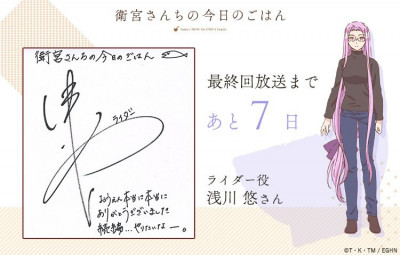 衛宮さんちの今日のごはん
衛宮さんちの今日のごはん
ライダー
おうえん本当に本当に
ありがとうございました
続編…やりたいなー。
最終回放送まで
あと7日
ライダー役
浅川 悠さん
©T・K・TM / EGHN